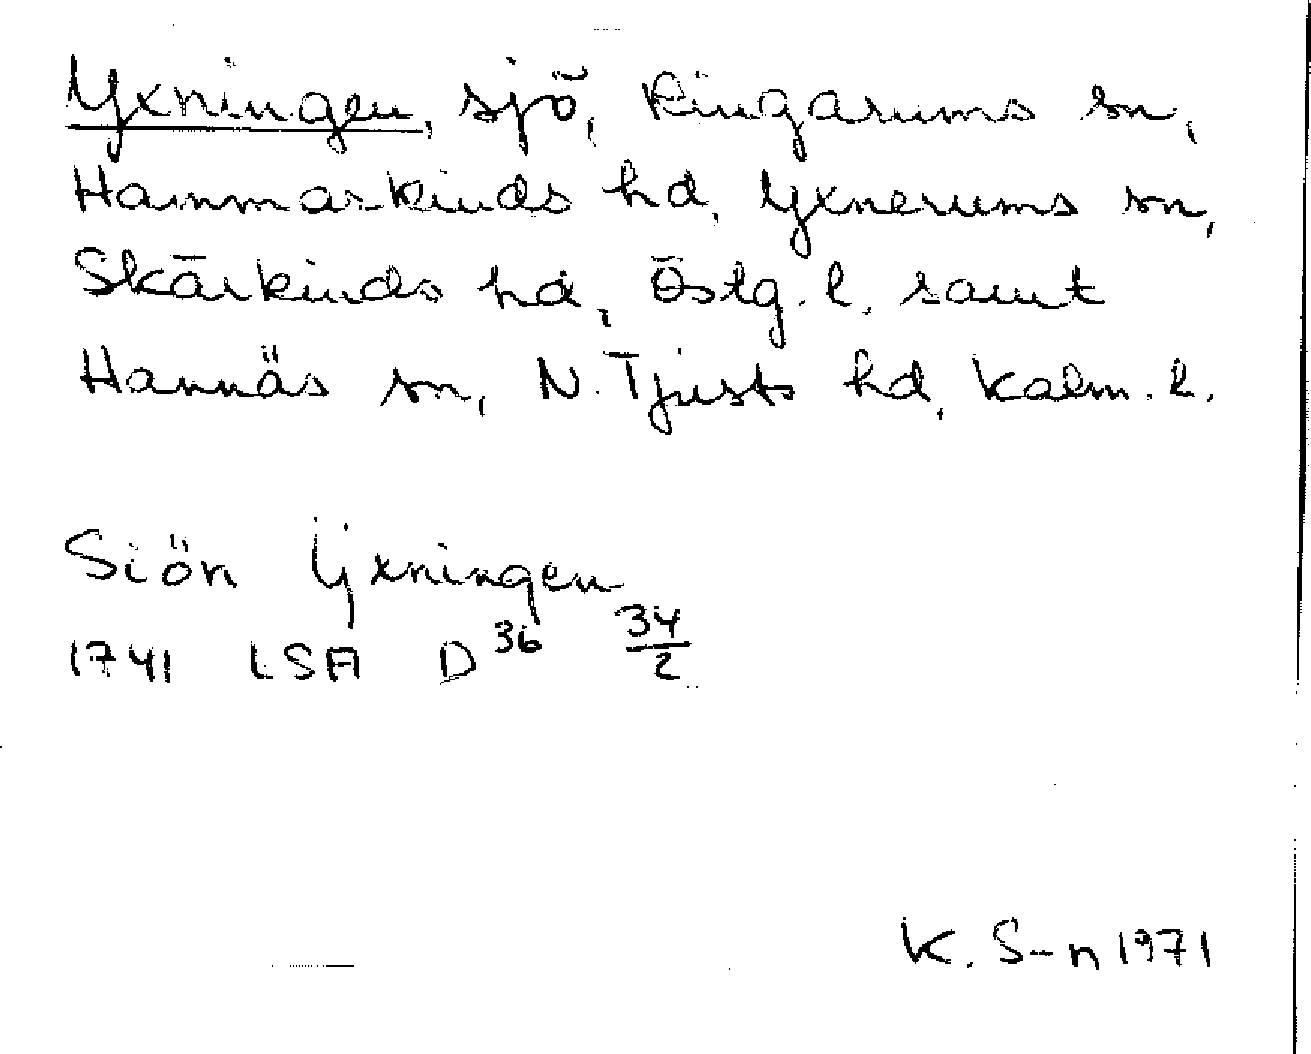 Yxningen, sjö, Ringarums sn,
Hammarkinds hd, Yxnerums sn,
Skärkinds hd, Östg. l. samt
Hannäs sn, N. Tjusts hd, Kalm. l.
Siön Ÿxningen
1741 LSA D 36 34/2
K. S-n 1971